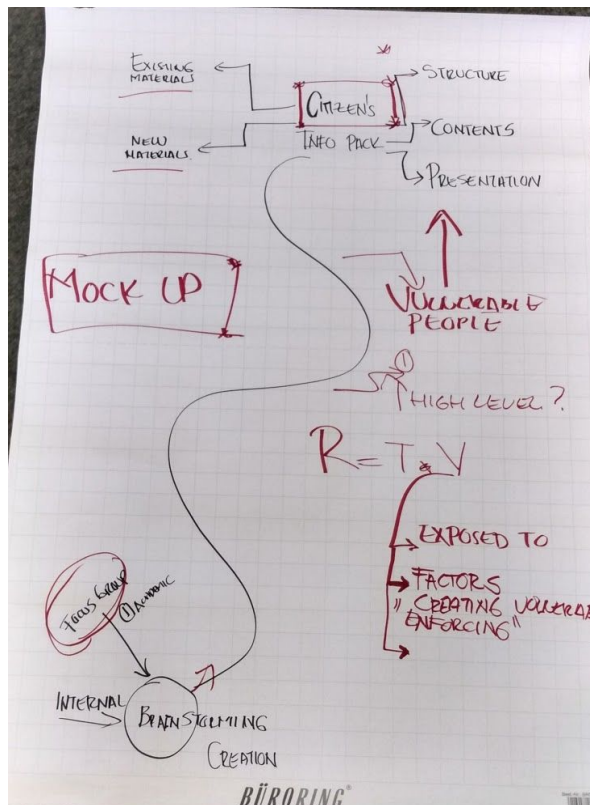 EXISTING
MATERIALS
NEW
MATERIALS
CITIZEN'S
INFO PACK
STRUCTURE
CONTENTS
PRESENTATION
MOCK UP
VULNERABLE
PEOPLE
①
HIGH LEVEL?
R = T * V
EXPOSED TO
FACTORS
"CREATING
ENFORCING"
FOCUS GROUP
① ACADEMIC
INTERNAL
BRAINSTORMING
CREATION
BÜRORING